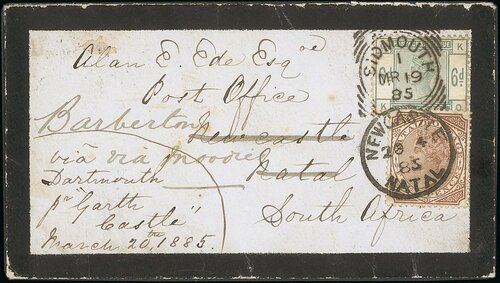 Alan E. Ede Esqre
Post Office
Newcastle
Natal
South Africa
Barberton
via via Moodie
Dartmouth
pr "Garth
Castle"
March 20th, 1885.
SIDMOUTH
1
MR 19
85
6d
6d
K
O
NEWCASTLE
28 4
85
NATAL